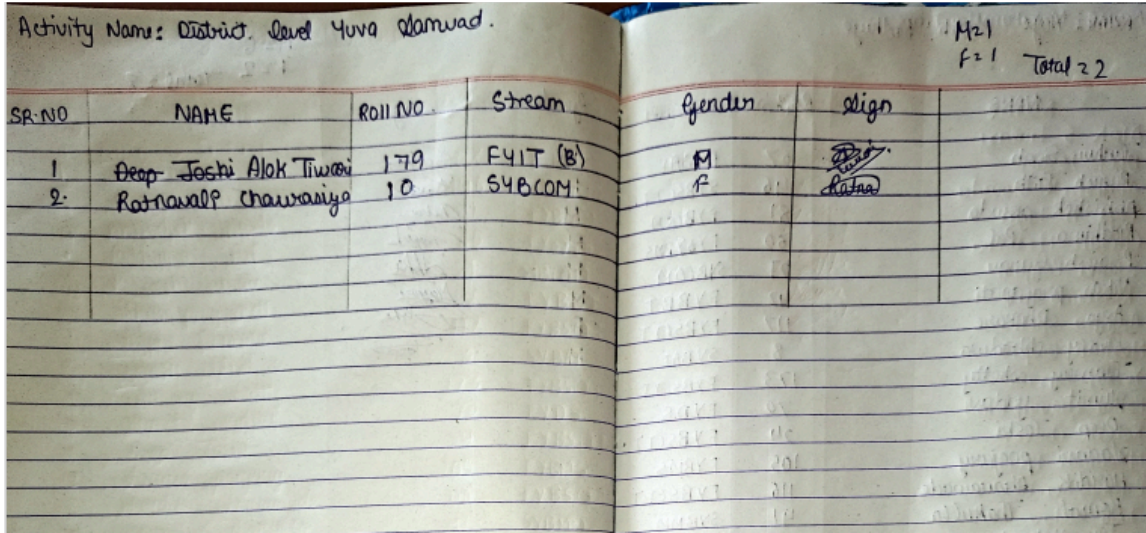 Activity Name: District level Yuva Samvad.
M=1
F=1 Total=2
SR.NO NAME ROll NO. Stream Gender Sign
1 Deep Joshi Alok Tiwari 179 FYIT (B) M
2. Ratnavali Chaurasiya 10 SYBCOM F Ratna